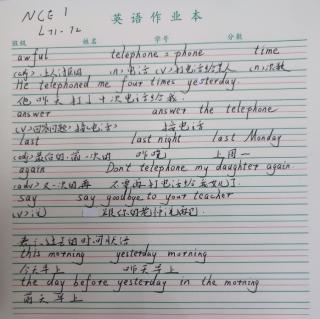 NCE 1
L71-72
英语作业本
班级 姓名 学号 分数
awful telephone = phone time
(adj) 让人讨厌的 (n) 电话 (v) 打电话给某人 (n) 次数
He telephoned me four times yesterday.
他昨天打了十次电话给我.
answer answer the telephone
(v) 回答(问题) 接(电话) 接电话
last last night last Monday
(adj) 最后的,前一次的 昨晚 上周一
again Don't telephone my daughter again
(adv) 又一次的再 不要再打电话给我女儿了.
say say goodbye to your teacher
(v) 说 跟你的老师说再见.
表示过去的时间状语
this morning yesterday morning
今天早上 昨天早上
the day before yesterday in the morning
前天早上